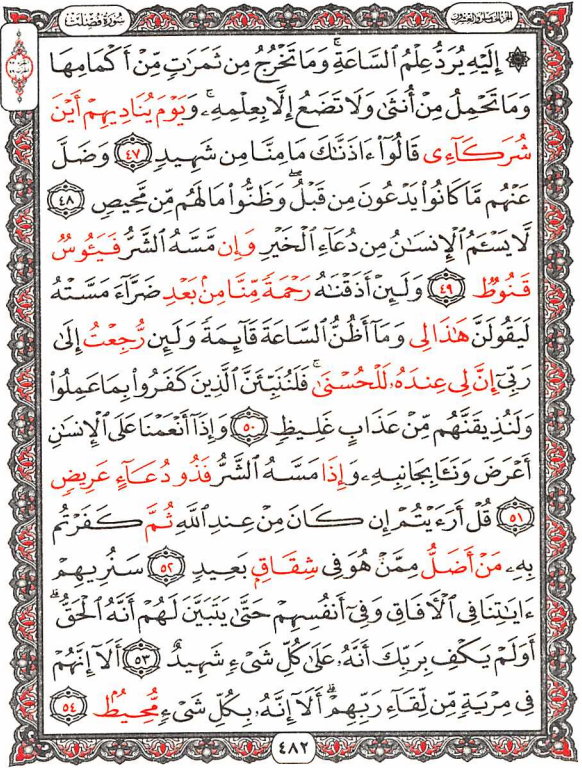 سُورَةُ فُصِّلَتْ
۞ إِلَيْهِ يُرَدُّ عِلْمُ ٱلسَّاعَةِۚ وَمَا تَخْرُجُ مِن ثَمَرَٰتٍ مِّنْ أَكْمَامِهَا
وَمَا تَحْمِلُ مِنْ أُنثَىٰ وَلَا تَضَعُ إِلَّا بِعِلْمِهِۦۚ وَيَوْمَ يُنَادِيهِمْ أَيْنَ
شُرَكَآءِى قَالُوٓا۟ ءَاذَنَّٰكَ مَا مِنَّا مِن شَهِيدٍ ٤٧ وَضَلَّ
عَنْهُم مَّا كَانُوا۟ يَدْعُونَ مِن قَبْلُۖ وَظَنُّوا۟ مَا لَهُم مِّن مَّحِيصٍ ٤٨
لَّا يَسْـَٔمُ ٱلْإِنسَٰنُ مِن دُعَآءِ ٱلْخَيْرِ وَإِن مَّسَّهُ ٱلشَّرُّ فَيَـُٔوسٌ
قَنُوطٌ ٤٩ وَلَئِنْ أَذَقْنَٰهُ رَحْمَةً مِّنَّا مِنۢ بَعْدِ ضَرَّآءَ مَسَّتْهُ
لَيَقُولَنَّ هَٰذَا لِى وَمَآ أَظُنُّ ٱلسَّاعَةَ قَآئِمَةً وَلَئِن رُّجِعْتُ إِلَىٰ
رَبِّىٓ إِنَّ لِى عِندَهُۥ لَلْحُسْنَىٰۚ فَلَنُنَبِّئَنَّ ٱلَّذِينَ كَفَرُوا۟ بِمَا عَمِلُوا۟
وَلَنُذِيقَنَّهُم مِّنْ عَذَابٍ غَلِيظٍ ٥٠ وَإِذَآ أَنْعَمْنَا عَلَى ٱلْإِنسَٰنِ
أَعْرَضَ وَنَـَٔا بِجَانِبِهِۦ وَإِذَا مَسَّهُ ٱلشَّرُّ فَذُو دُعَآءٍ عَرِيضٍ
٥١ قُلْ أَرَءَيْتُمْ إِن كَانَ مِنْ عِندِ ٱللَّهِ ثُمَّ كَفَرْتُم
بِهِۦ مَنْ أَضَلُّ مِمَّنْ هُوَ فِى شِقَاقٍۭ بَعِيدٍ ٥٢ سَنُرِيهِمْ
ءَايَٰتِنَا فِى ٱلْءَافَاقِ وَفِىٓ أَنفُسِهِمْ حَتَّىٰ يَتَبَيَّنَ لَهُمْ أَنَّهُ ٱلْحَقُّۗ
أَوَلَمْ يَكْفِ بِرَبِّكَ أَنَّهُۥ عَلَىٰ كُلِّ شَىْءٍ شَهِيدٌ ٥٣ أَلَآ إِنَّهُمْ
فِى مِرْيَةٍ مِّن لِّقَآءِ رَبِّهِمْۗ أَلَآ إِنَّهُۥ بِكُلِّ شَىْءٍ مُّحِيطٌۢ ٥٤
٤٨٢